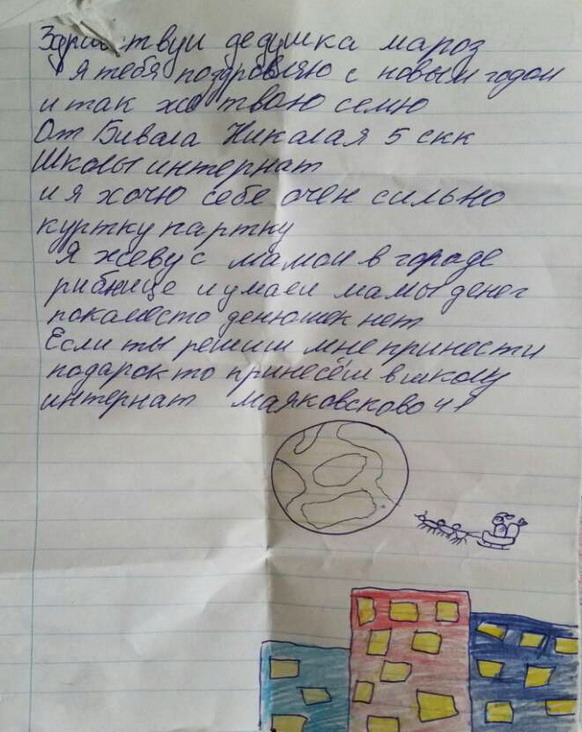 Здраствуи дедушка мароз
Я тебя поздровляю с новым годом
и так жо тваю семю
От Бивола Николая 5 скк
Школы интернат
и я хочу себе очен сильно
куртку партку
Я жеву с мамои в городе
рибнице и умаеи мамы денег
покаместо денюшек нет
Если ты решиш мне принести
подарок то принесёш в школу
интернат маяковсково 41